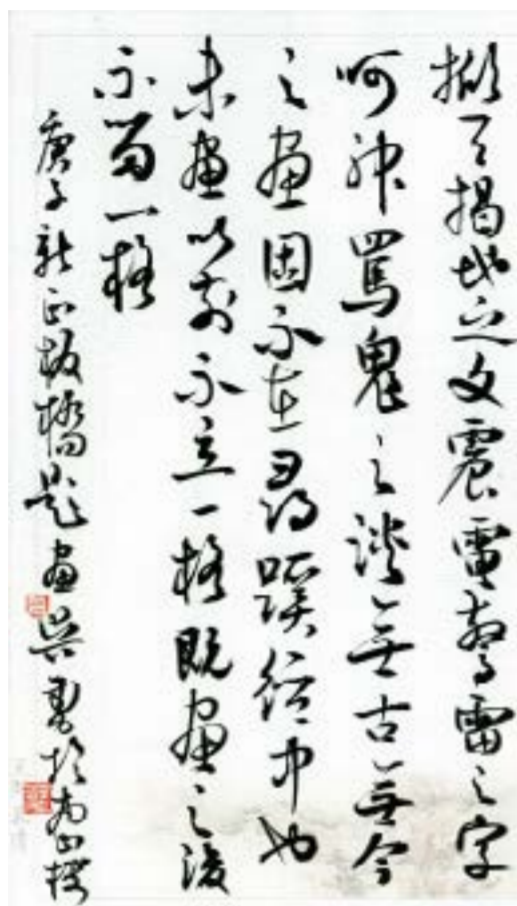 掀天揭地之文震電驚雷之字
呵神罵鬼之談無古無今
之畫固不在尋蹊徑中也
未畫以前不立一格既畫之後
不留一格
庚子新正板橋題畫吴於山樓